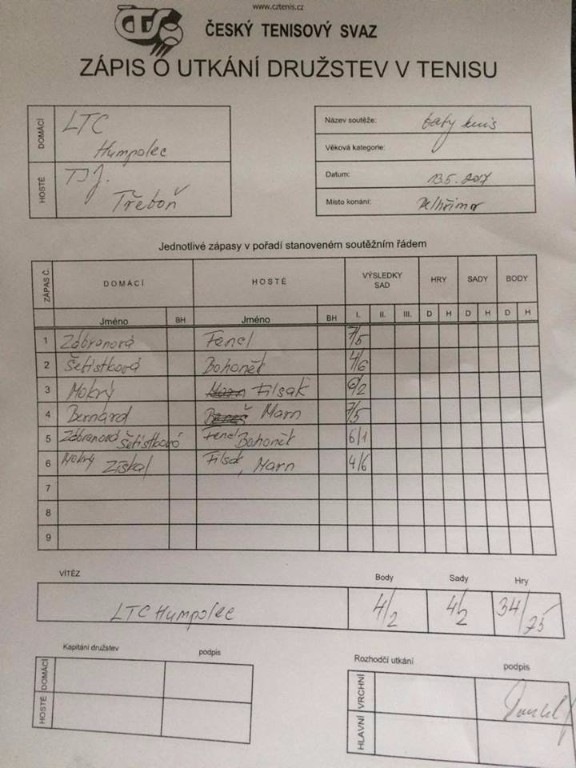 www.cztenis.cz
ČTS ČESKÝ TENISOVÝ SVAZ
ZÁPIS O UTKÁNÍ DRUŽSTEV V TENISU
DOMÁCÍ LTC Humpolec
HOSTÉ TJ. Třeboň
Název soutěže: baby tenis
Věková kategorie:
Datum: 13.5.2017
Místo konání: Pelhřimov
Jednotlivé zápasy v pořadí stanoveném soutěžním řádem
ZÁPAS Č. DOMÁCÍ HOSTÉ VÝSLEDKY SAD HRY SADY BODY
Jméno BH Jméno BH I. II. III. D H D H D H
1 Zábranová Fenel 7/5
2 Šetistková Bohonět 4/6
3 Mokrý Filsak 6/2
4 Bernard Marn 7/5
5 Zábranová Šetistková Fenel Bohonět 6/1
6 Mokrý Získal Filsak, Marn 4/6
7
8
9
VÍTĚZ Body Sady Hry
LTC Humpolec 4/2 4/2 34/25
Kapitáni družstev podpis
DOMÁCÍ
HOSTÉ
Rozhodčí utkání podpis
VRCHNÍ
HLAVNÍ